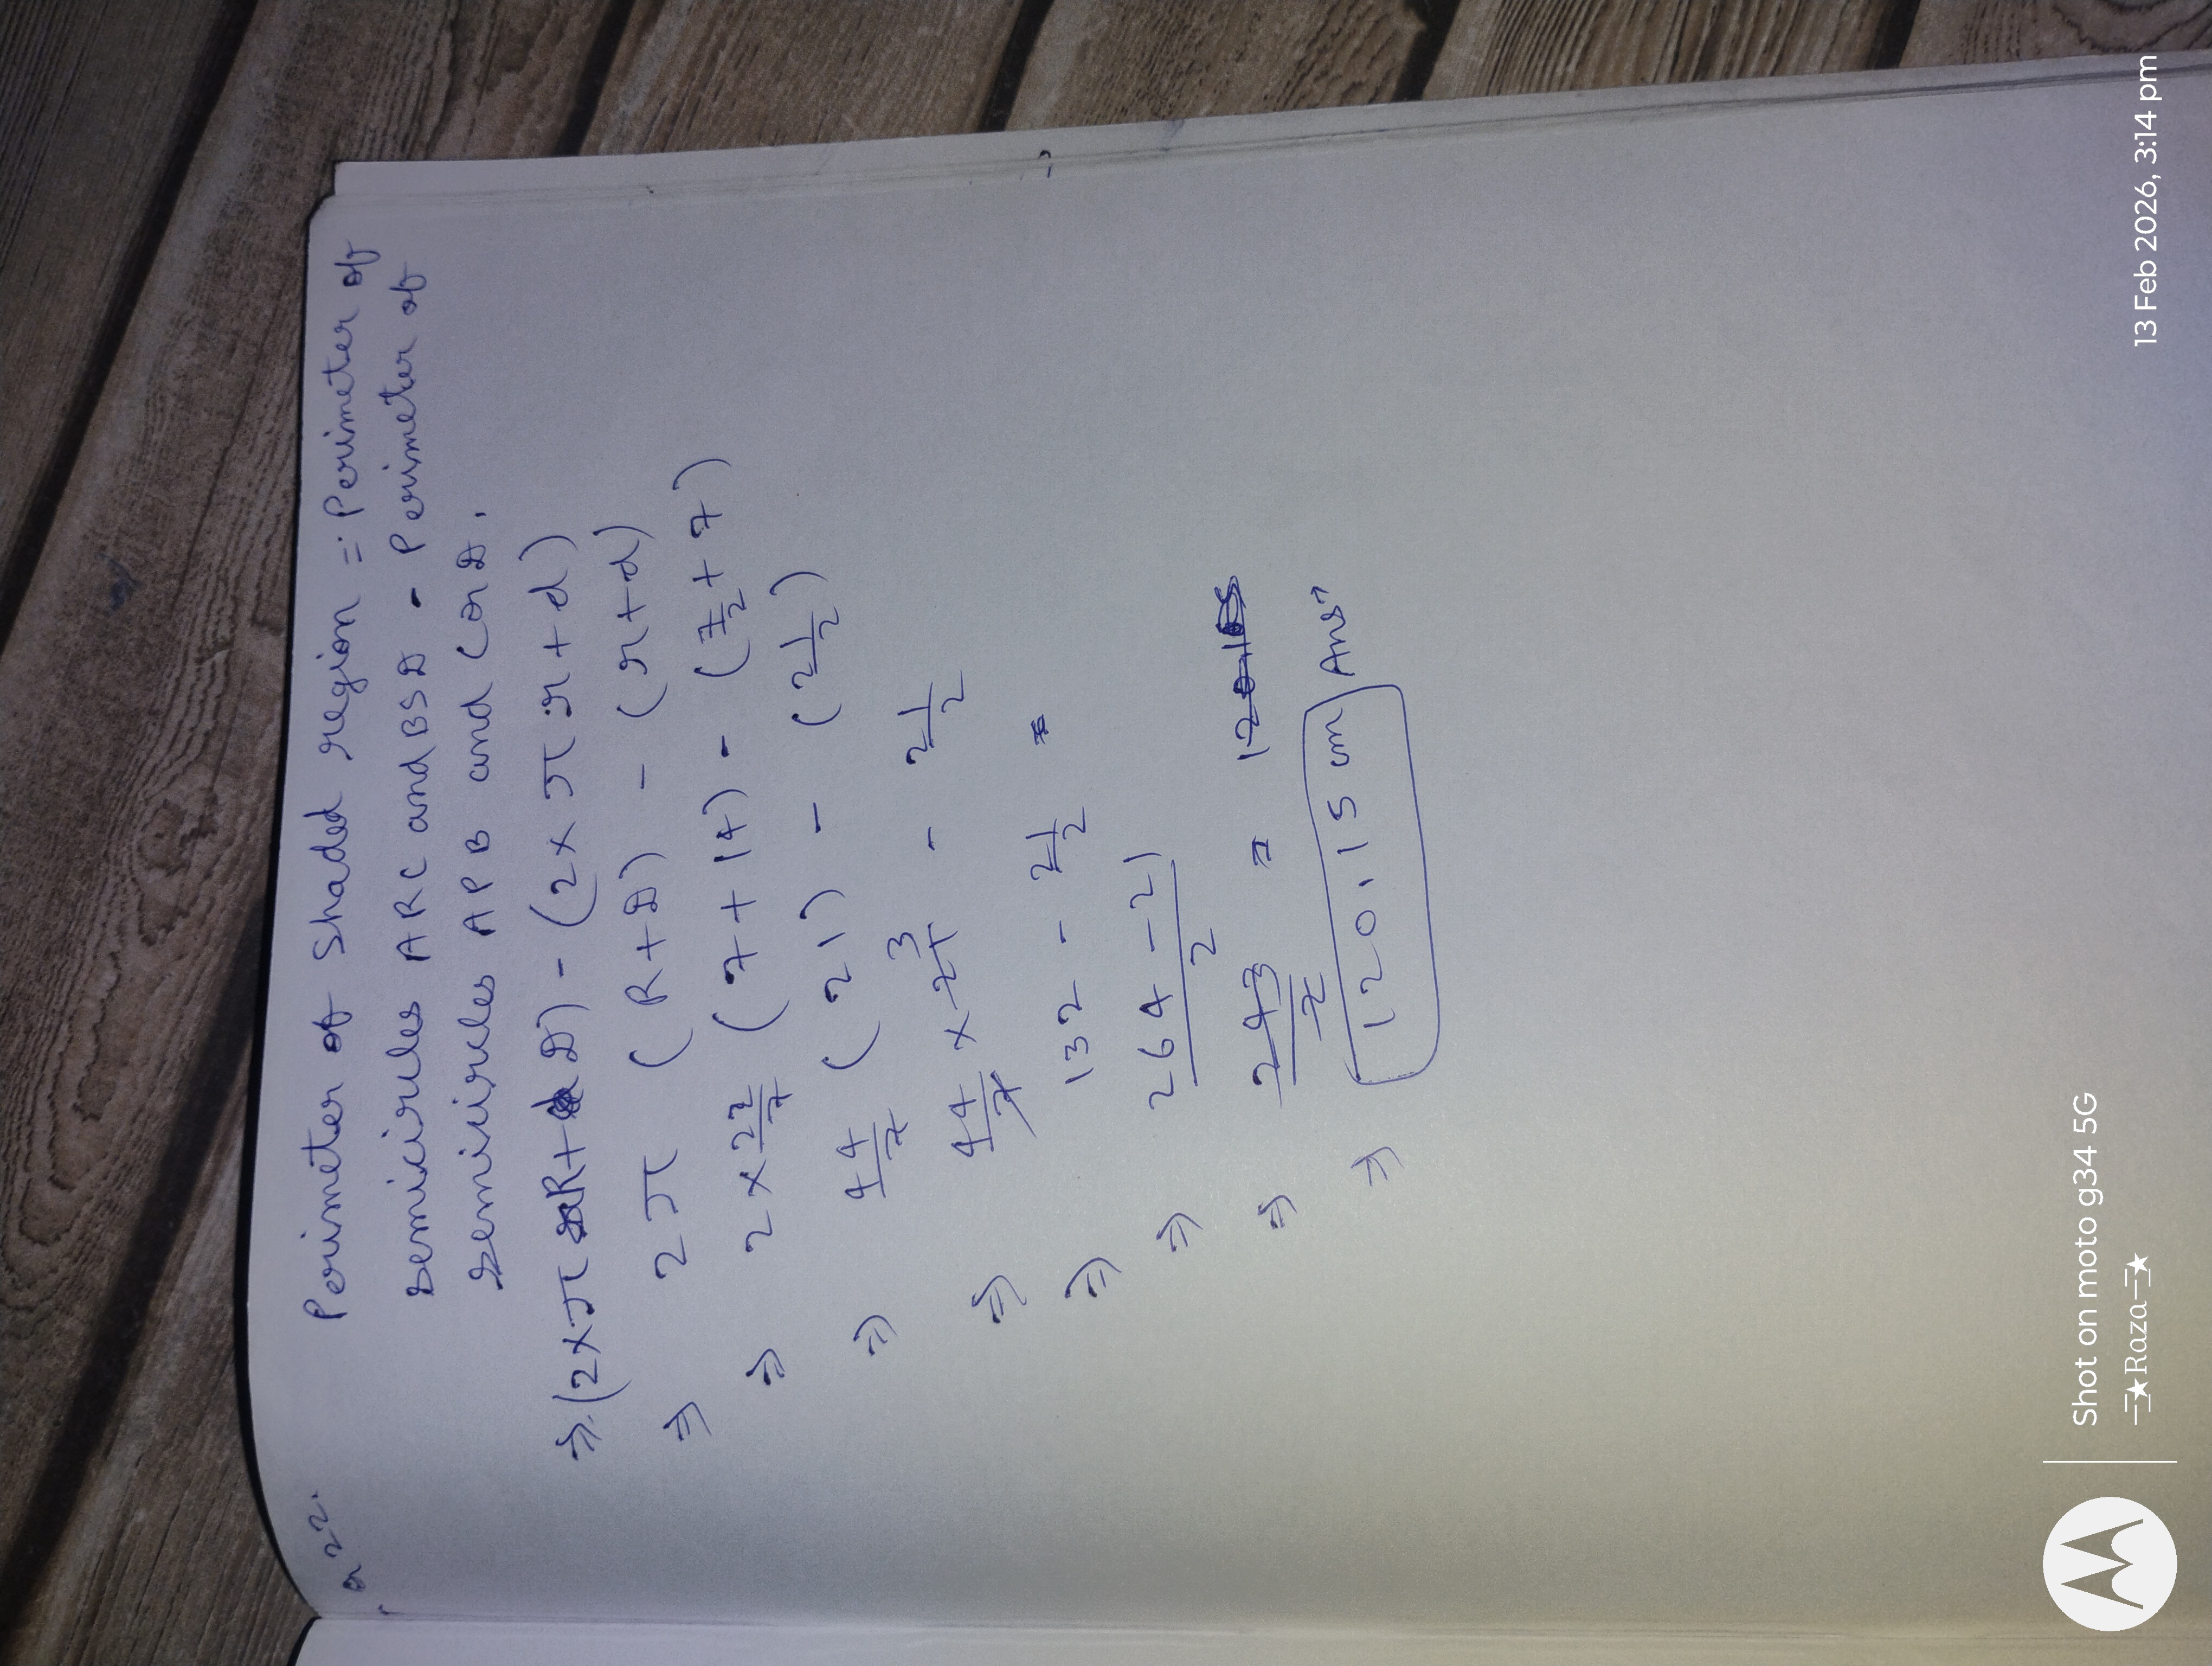 Q 22.
Perimeter of Shaded region = Perimeter of
semicirules ARC and BSD - Perimeter of
semicirules APB and CQD.
⇒ (2×π R+ D) - (2×π r + d)
⇒ 2π (R+D) - (r+d)
⇒ 2×22/7 (7+14) - (7/2+7)
⇒ 44/7 (21) - (21/2)
⇒ 44/7 × 21 3 - 21/2
⇒ 132 - 21/2 =
⇒ 264-21/2
⇒ 243/2 =
⇒ 120.15 cm Ans
Shot on moto g34 5G
★Raza★
13 Feb 2026, 3:14 pm